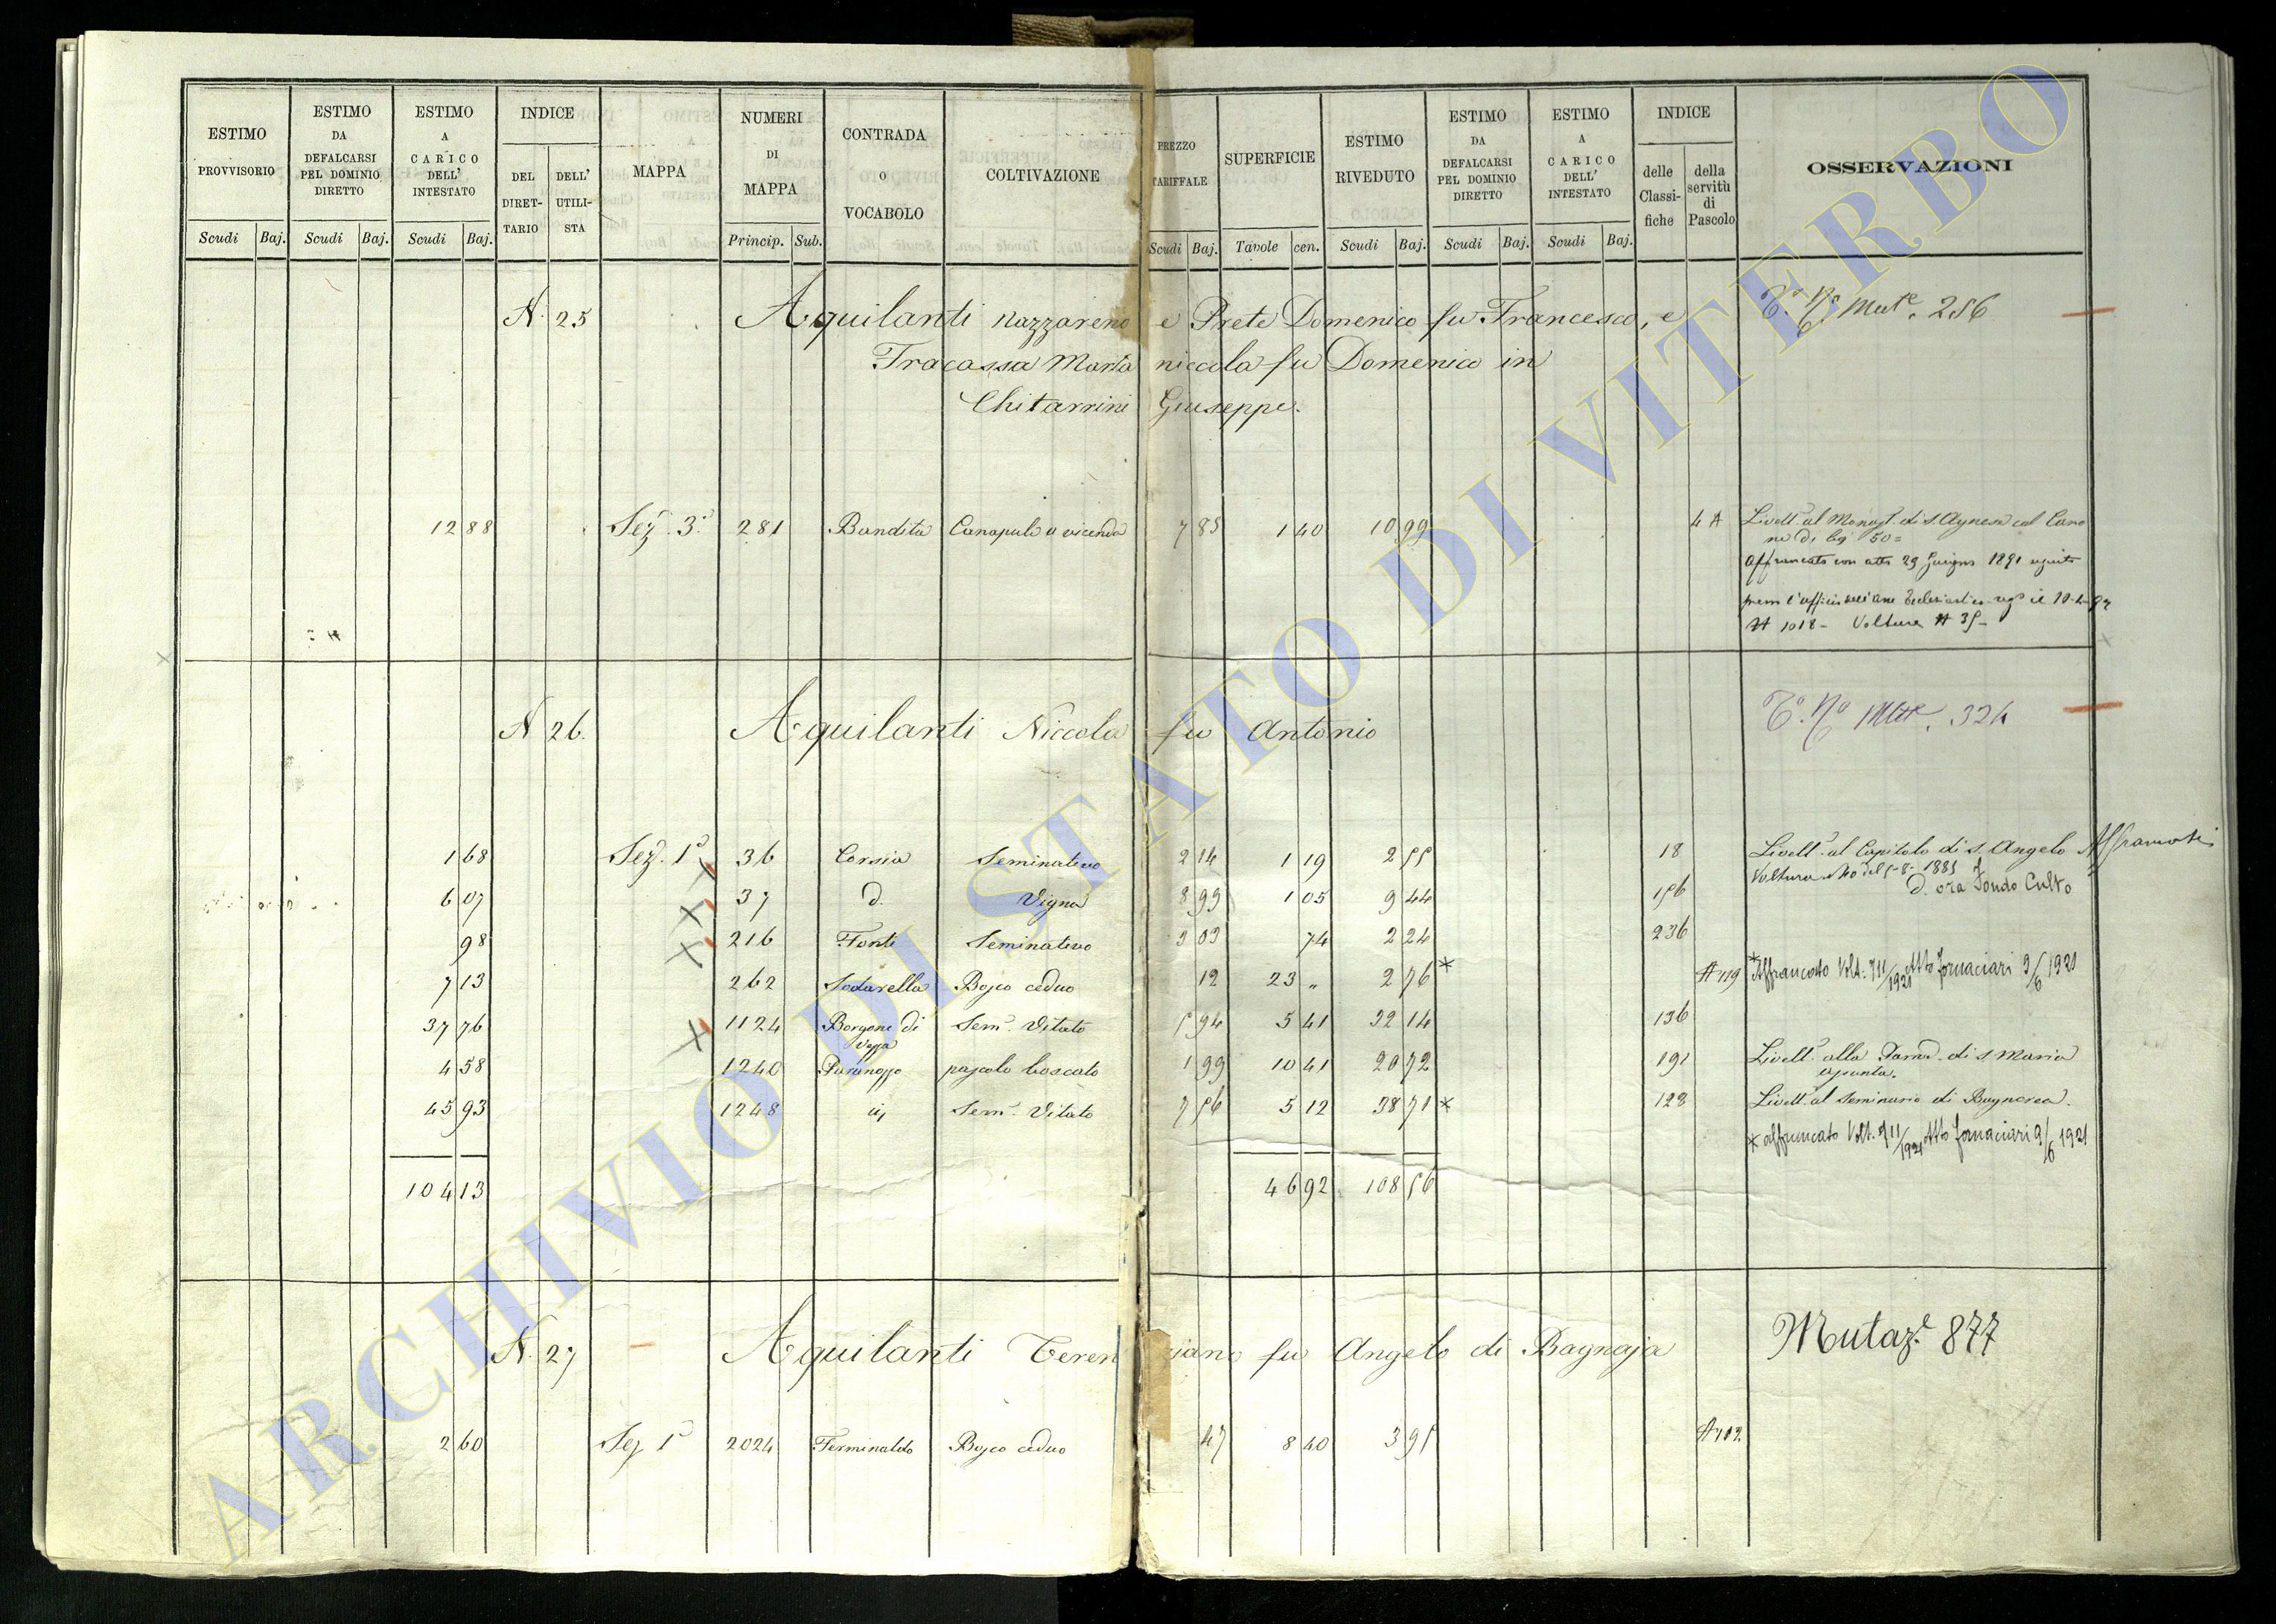 ESTIMO PROVVISORIO Scudi Baj.
ESTIMO DA DEFALCARSI PEL DOMINIO DIRETTO Scudi Baj.
ESTIMO A CARICO DELL' INTESTATO Scudi Baj.
INDICE DEL DIRET-TARIO DELL' UTILI-STA
MAPPA
NUMERI DI MAPPA Princip. Sub.
CONTRADA O VOCABOLO
COLTIVAZIONE
PREZZO TARIFFALE Scudi Baj.
SUPERFICIE Tavole cen.
ESTIMO RIVEDUTO Scudi Baj.
ESTIMO DA DEFALCARSI PEL DOMINIO DIRETTO Scudi Baj.
ESTIMO A CARICO DELL' INTESTATO Scudi Baj.
INDICE delle Classi-fiche della servitù di Pascolo
OSSERVAZIONI
N. 25 Aquilanti Nazzareno e Prete Domenico fu Francesco, e Mut.e 256
Fracassa Maria niccola fu Domenico in
Chitarrini Giuseppe.
12 88 Sez. 3a 281 Bandita Canapule a vicenda 7 85 1 40 10 99 4 A Livell. al Monast. di S. Agnese col Cano
ne di bj 50=
Affrancato con atto 23 Giugno 1891
N 1018 - Voltura N 35-
N 26. Aquilanti Niccola fu Antonio 324
1 68 Sez. 1a 36 Corsia Seminativo 2 14 1 19 2 55 18 Livell. al Capitolo di S. Angelo
6 07 37 d. Vigna 8 99 1 05 9 44 156 d. ora Fondo Culto
98 216 Fonte Seminativo 3 03 74 2 24 236
7 13 262 Sodarella Bosco ceduo 12 23 " 2 76 * A 119 * Affrancato Volt. 711/1921 Atto Fornaciari 9/6 1921
37 76 1124 Borgone di Sem. Vitato 5 94 5 41 32 14 136
4 58 1240 pascolo boscato 1 99 10 41 20 72 191 Livell. alla di S. Maria
assunta.
45 93 1248 Sem. Vitato 7 56 5 12 38 71 * 123 Livell. al Seminario di Bagnorea.
* affrancato Volt. 711/1921 Atto Fornaciari 9/6 1921
104 13 46 92 108 56
N. 27 Aquilanti Terenziano fu Angelo di Bagnaja Mutaz.e 877
2 60 Sez 1a 2024 Terminaldo Bosco ceduo 47 8 40 3 95 A 102
ARCHIVIO DI STATO DI VITERBO